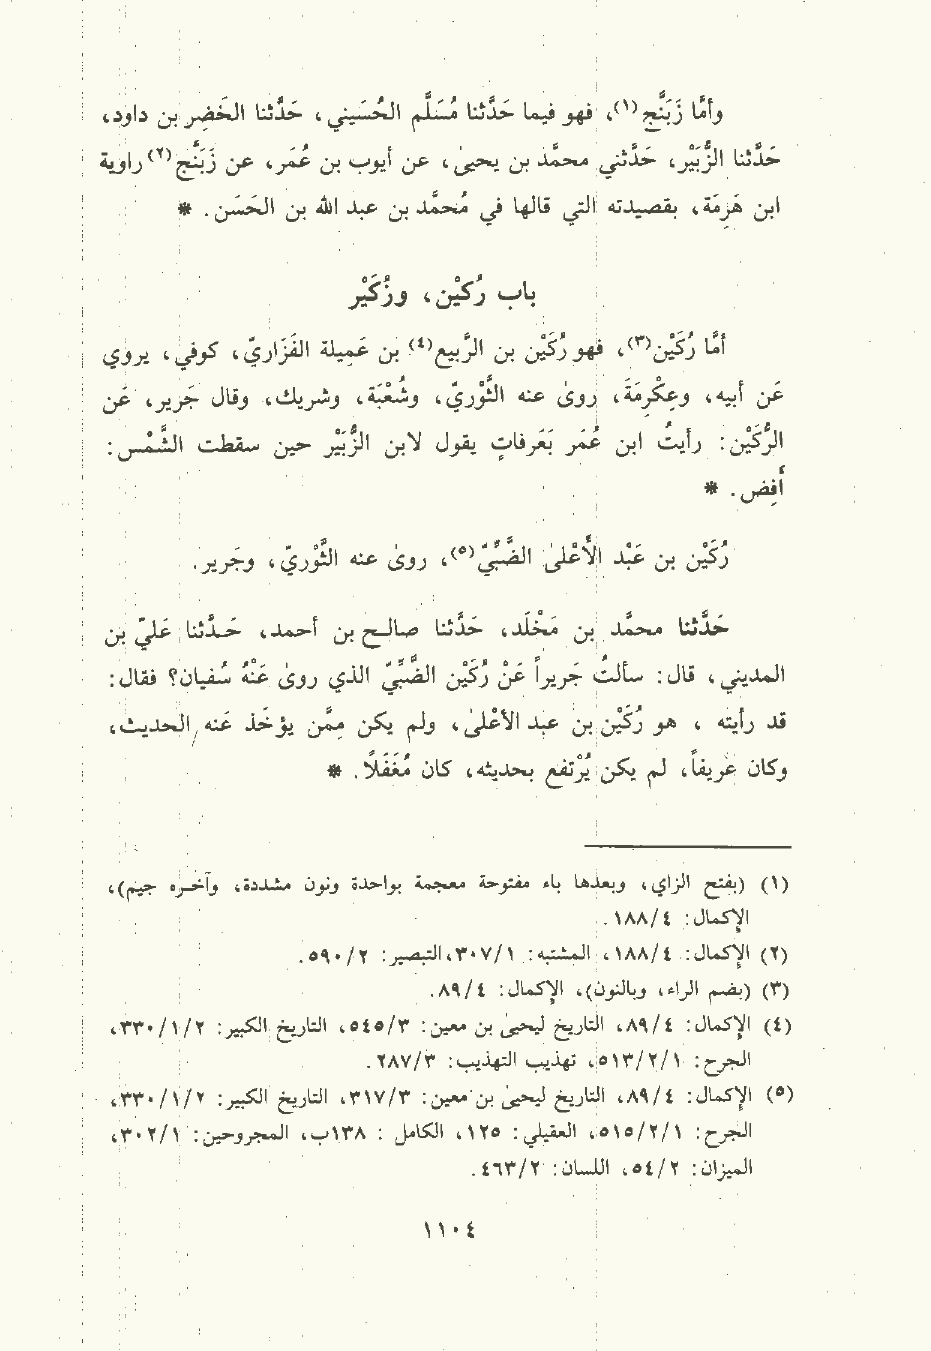 وأمَّا زَبَنَّج(١)، فهو فيما حَدَّثنا مُسَلَّم الحُسَيني، حَدَّثنا الخَضِر بن داود،
حَدَّثنا الزُّبَيْر، حَدَّثني محمَّد بن يحيىٰ، عن أيوب بن عُمَر، عن زَبَنَّج(٢) راوية
ابن هَرِمَة، بقصيدته التي قالها في مُحمَّد بن عبد الله بن الحَسَن. *
باب رُكَيْن، وزُكَيْر
أمَّا رُكَيْن(٣)، فهو رُكَيْن بن الرَّبيع(٤) بن عَمِيلة الفَزَاريّ، كوفي، يروي
عَن أبيه، وعِكْرِمَةَ، روىٰ عنه الثَّوْريّ، وشُعْبَة، وشريك، وقال جَرير، عَن
الرُّكَيْن: رأيتُ ابن عُمَر بَعَرفاتٍ يقول لابن الزُّبَيْر حين سقطت الشَّمْس:
أَفِض. *
رُكَيْن بن عَبْد الأَعْلىٰ الضَّبِّيّ(٥)، روىٰ عنه الثَّوْريّ، وجَرير.
حَدَّثنا محمَّد بن مَخْلَد، حَدَّثنا صالح بن أحمد، حَدَّثنا عَليّ بن
المديني، قال: سألتُ جَريراً عَنْ رُكَيْن الضَّبِّيّ الذي روىٰ عَنْهُ سُفيان؟ فقال:
قد رأيته ، هو رُكَيْن بن عبد الأعْلىٰ، ولم يكن مِمَّن يؤخَذ عَنه الحديث،
وكان عَريفاً، لم يكن يُرْتفع بحديثه، كان مُغَفَلاً. *
(١) (بفتح الزاي، وبعدها باء مفتوحة معجمة بواحدة ونون مشددة، وآخره جيم)،
الإكمال: ١٨٨/٤.
(٢) الإكمال: ١٨٨/٤، المشتبه: ٣٠٧/١،التبصير: ٥٩٠/٢.
(٣) (بضم الراء، وبالنون)، الإكمال: ٨٩/٤.
(٤) الإكمال: ٨٩/٤، التاريخ ليحيىٰ بن معين: ٥٤٥/٣، التاريخ الكبير: ٣٣٠/١/٢،
الجرح: ٥١٣/٢/١، تهذيب التهذيب: ٢٨٧/٣.
(٥) الإكمال: ٨٩/٤، التاريخ ليحيىٰ بن معين: ٣١٧/٣، التاريخ الكبير: ٣٣٠/١/٢،
الجرح: ٥١٥/٢/١، العقيلي: ١٢٥، الكامل : ١٣٨ب، المجروحين: ٣٠٢/١،
الميزان: ٥٤/٢، اللسان: ٤٦٣/٢.
١١٠٤